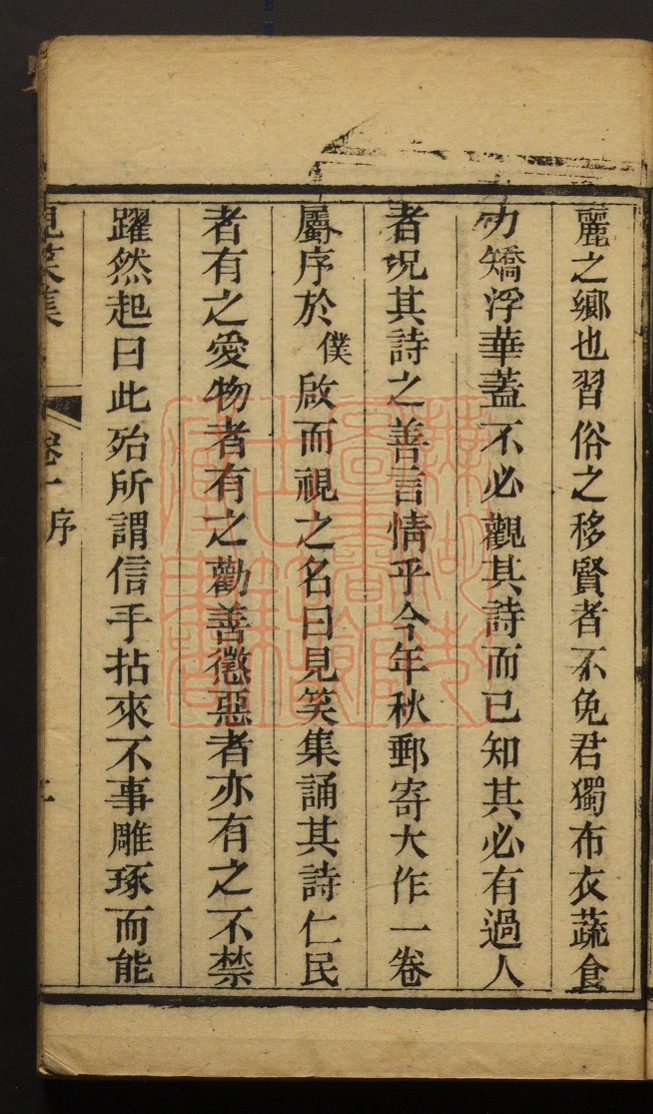 麗之鄉也習俗之移賢者不免君獨布衣蔬食
力矯浮華蓋不必觀其詩而已知其必有過人
者况其詩之善言情乎今年秋郵寄大作一卷
屬序於僕啟而視之名曰見笑集誦其詩仁民
者有之愛物者有之勸善懲惡者亦有之不禁
躍然起曰此殆所謂信手拈來不事雕琢而能
見笑集 卷一 序